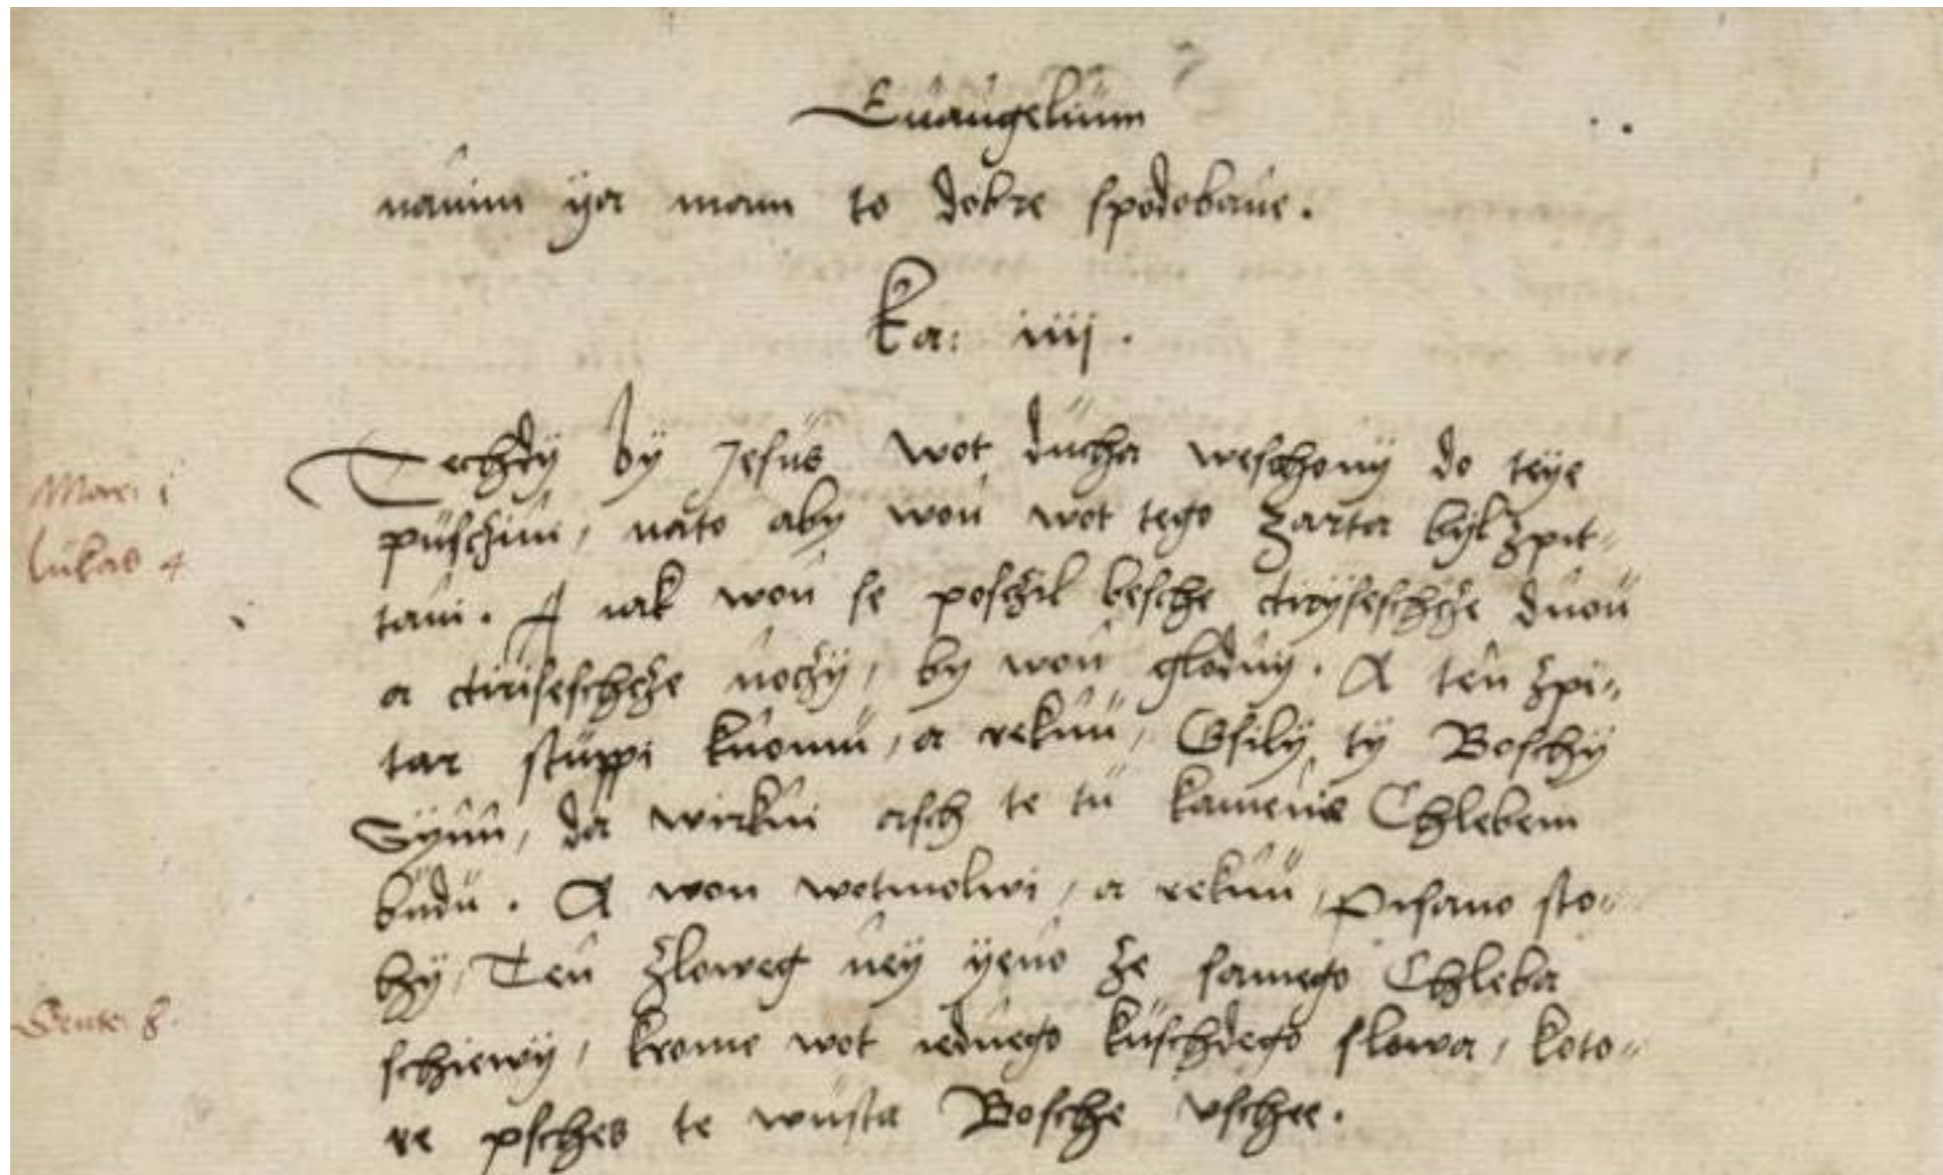 Euangelium
nauim ya mam to dobre spodobane.
Ka: iiij.
Techdy by Jesus wot ducha weschony do teye
Mar: i
puschini, nato aby won wot tego zarta byl zpit=
Lukas 4
tani. A nak won se poschzil besche ctiryseschcze dnou
a ctiriseschcze noczy, by won glodny. A ten zpi=
tar stuppi knomu, a reknu, Gsily ty Boschy
Synn, da wirkni asch te tu kamenie Chlebem
budu. A won wotmolwi, a reknu, Pisano sto=
hy, Ten zloweg ney yeno ze samego Chleba
Deute: 8.
schiewy, krome wot iednego kuschdego slowa, koto=
re psches te wusta Bosche vschee.